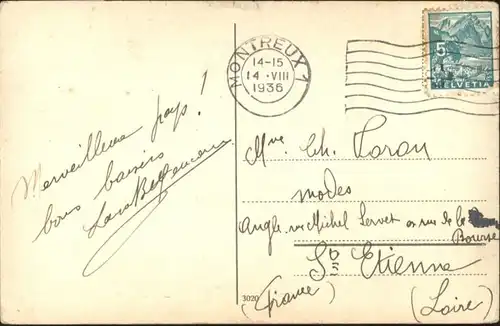 MONTREUX 1
14-15
14·VIII
1936
5
HELVETIA
Merveilleux pays!
bons baisers
Mme Ch. Toran
modes
Angle rue Michel Servet et rue de la
Bourse
St Etienne
(France)
(Loire)
3020